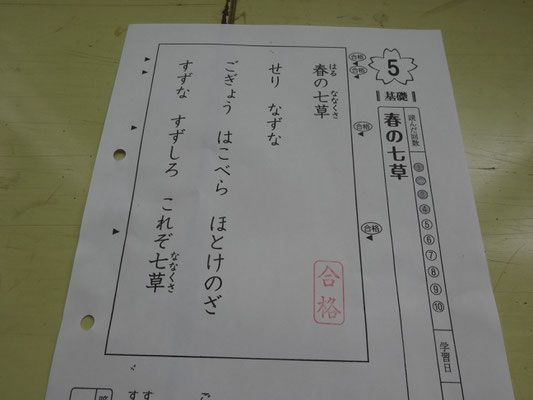 5
基礎
読んだ回数
①②③④⑤⑥⑦⑧⑨⑩
学習日
春の七草
合格
合格
合格
合格
春の七草
はる ななくさ
せり なずな
ごぎょう はこべら ほとけのざ
すずな すずしろ これぞ七草
ななくさ
合格